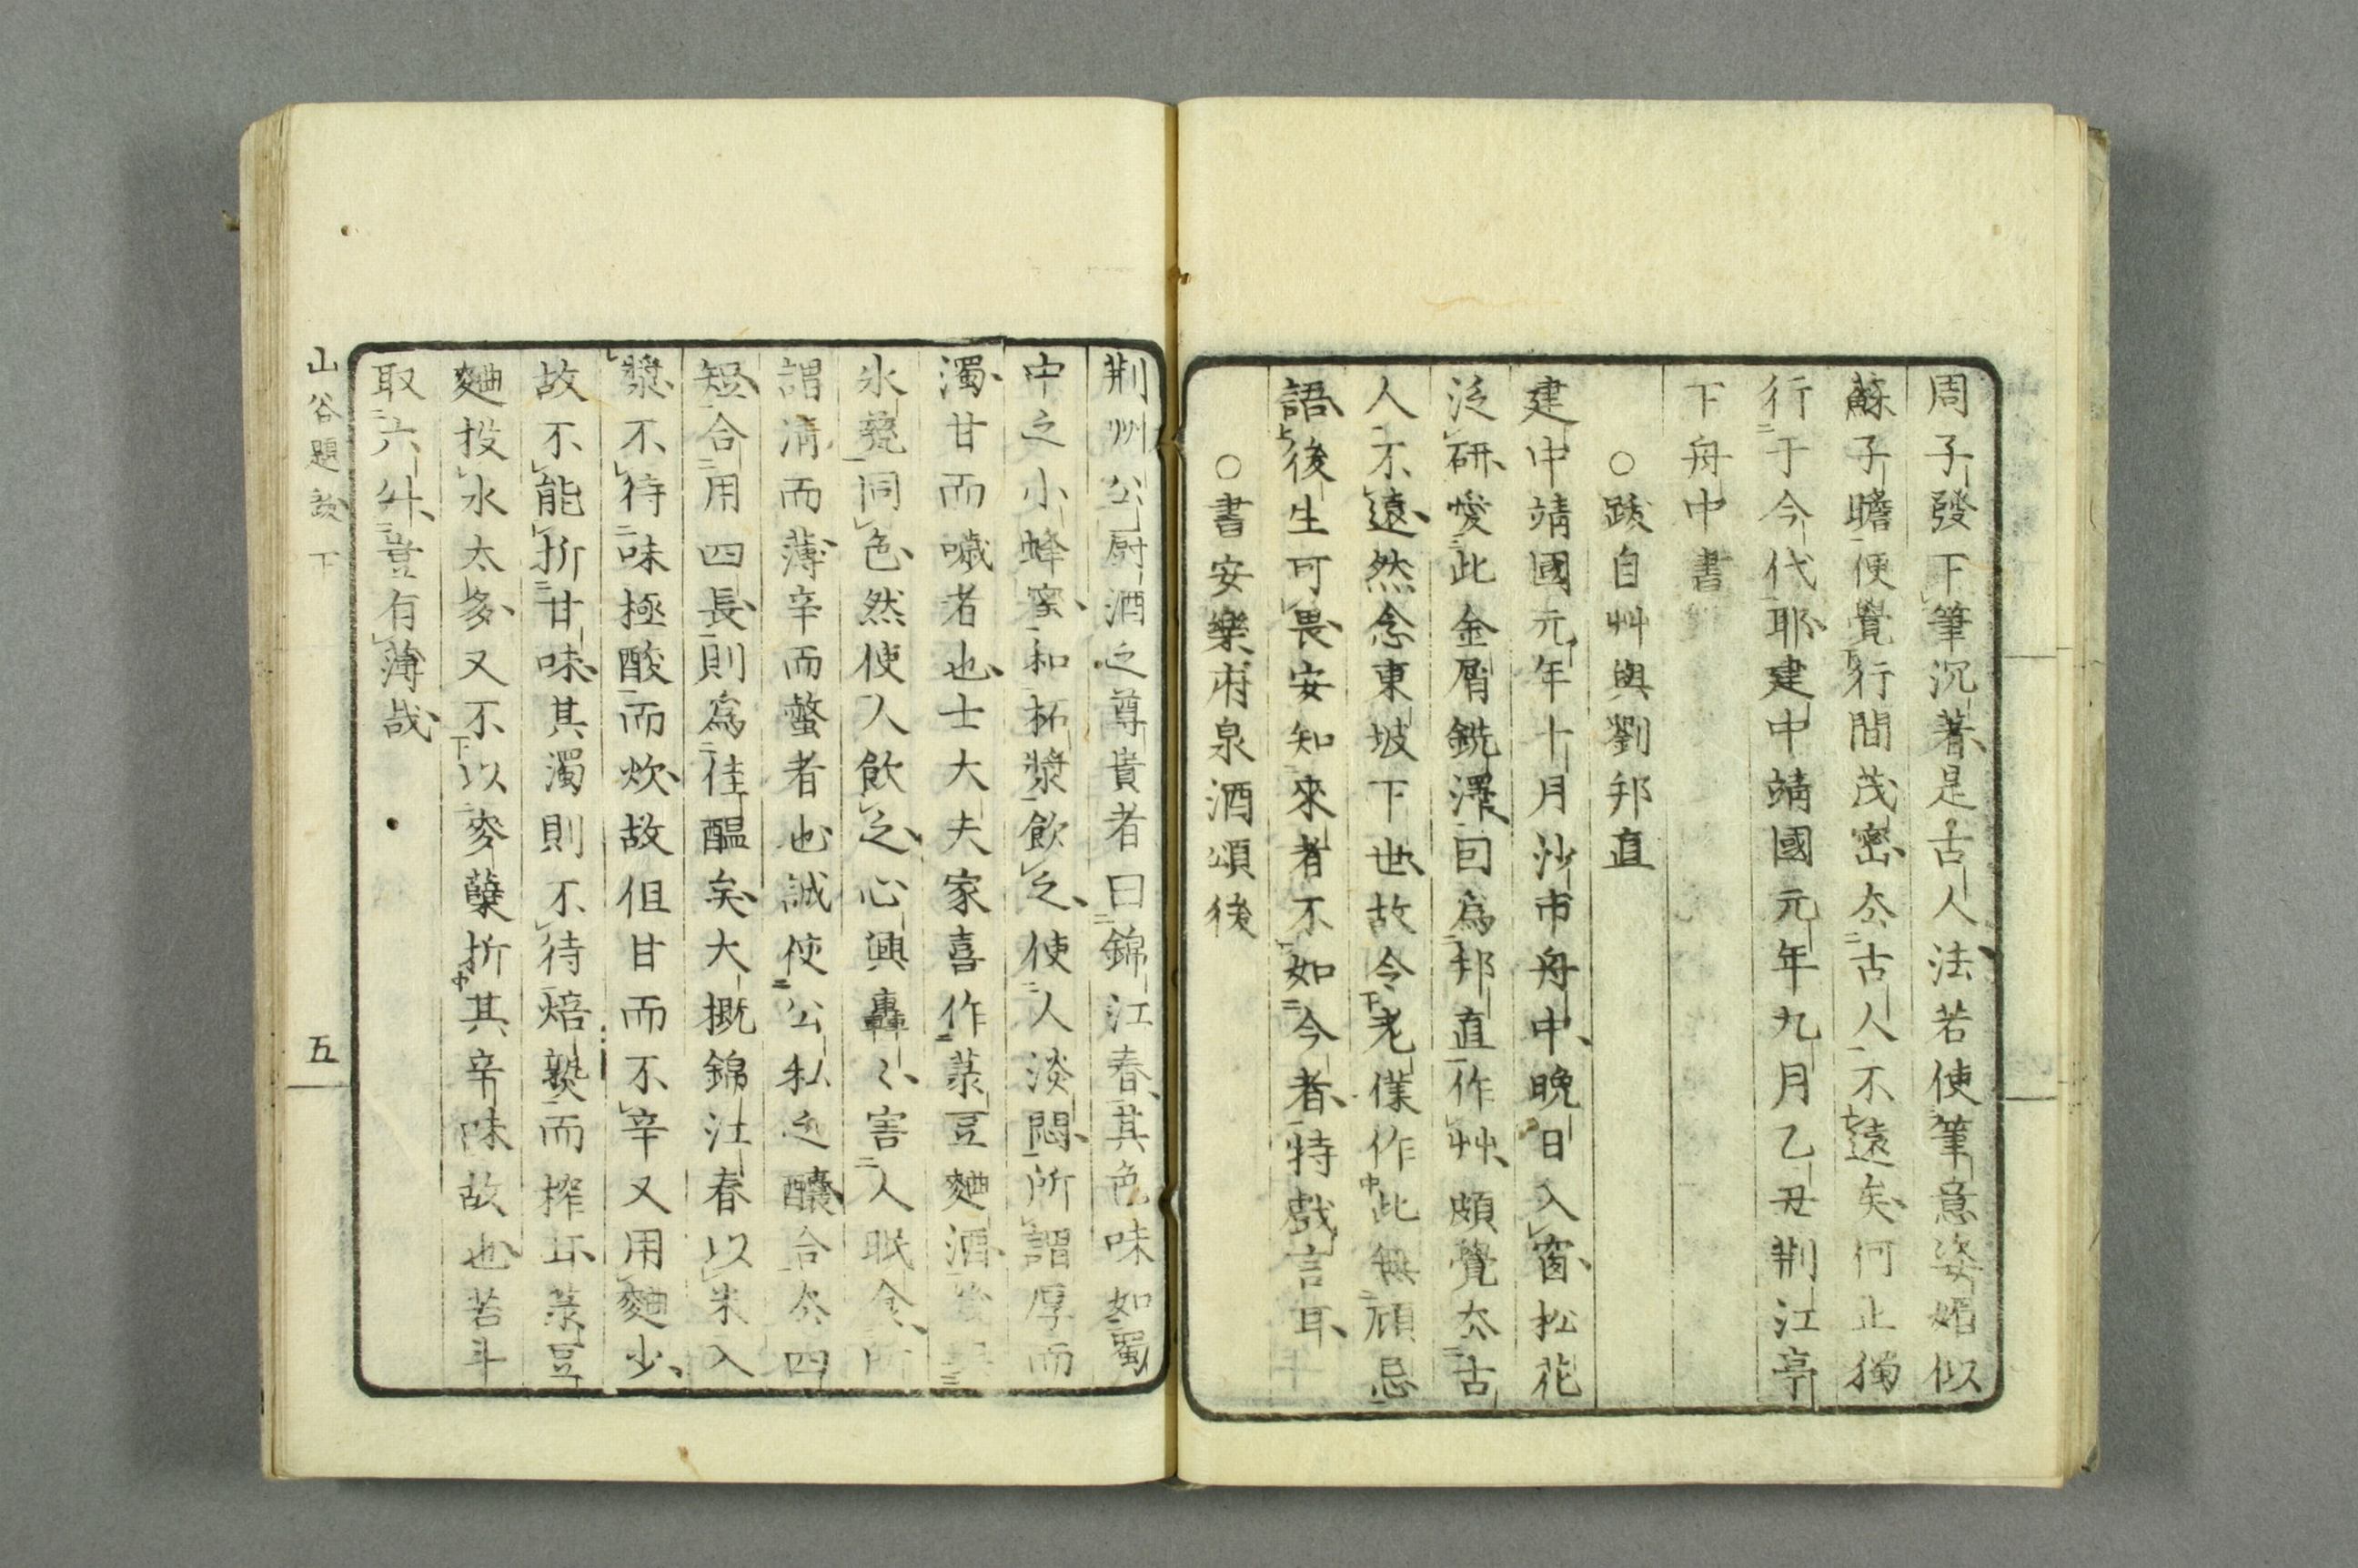 周子發下筆沉著是古人法若使筆意姿媚似
蘇子瞻便覺行間茂密去古人不遠矣何止獨
行于今代耶建中靖國元年九月乙丑荆江亭
下舟中書
○跋自艸與劉邦直
建中靖國元年十月沙市舟中晚日入窗松花
泛研愛此金屑銑澤回爲邦直作艸頗覺去古
人不遠然念東坡下世故令老僕作此無顧忌
語後生可畏安知來者不如今者特戲言耳
○書安樂泉酒頌後
荆州公厨酒之尊貴者曰錦江春其色味如蜀
中之小蜂蜜和柘漿飲之使人淡悶所謂厚而
濁甘而噦者也士大夫家喜作菉豆麯酒
氷甆同色然使人飲之心興轟〻害人眠食所
謂清而薄辛而螫者也誠使公私之釀合去四
短合用四長則爲佳醖矣大槩錦江春以米入
漿不待味極酸而炊故但甘而不辛又用麯少
故不能折甘味其濁則不待焙熟而榨耳菉豆
麯投水太多又不以麥蘖折其辛味故也若斗
取六升豈有薄哉
山谷題跋 下
五